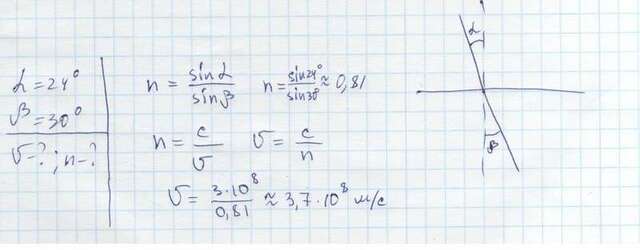 α = 24°
β = 30°
υ-? ; n-?
n = sinα / sinβ n = sin24° / sin30° ≈ 0,81
n = c / υ υ = c / n
υ = 3·10⁸ / 0,81 ≈ 3,7·10⁸ м/с
α
β